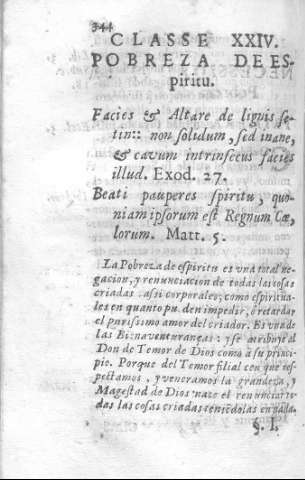 344
CLASSE XXIV.
POBREZA DE ES-
piritu.
Facies & Altare de lignis se-
tin:: non solidum, sed inane,
& cavum intrinsecus facies
illud. Exod. 27.
Beati pauperes spiritu, quo-
niam ipsorum est Regnum Cæ-
lorum. Matt. 5.
La Pobreza de espiritu es vna total ne-
gacion, y renunciacion de todas las cosas
criadas assi corporales, como espiritua-
les en quanto pueden impedir, ò retardar
el purissimo amor del criador. Es vna de
las Bienaventuranças: y se atribuye al
Don de Temor de Dios como à su princi-
pio. Porque del Temor filial con que res-
pectamos, y veneramos la grandeza, y
Magestad de Dios nace el renunciar to-
das las cosas criadas teniendolas en nada.
§. I.